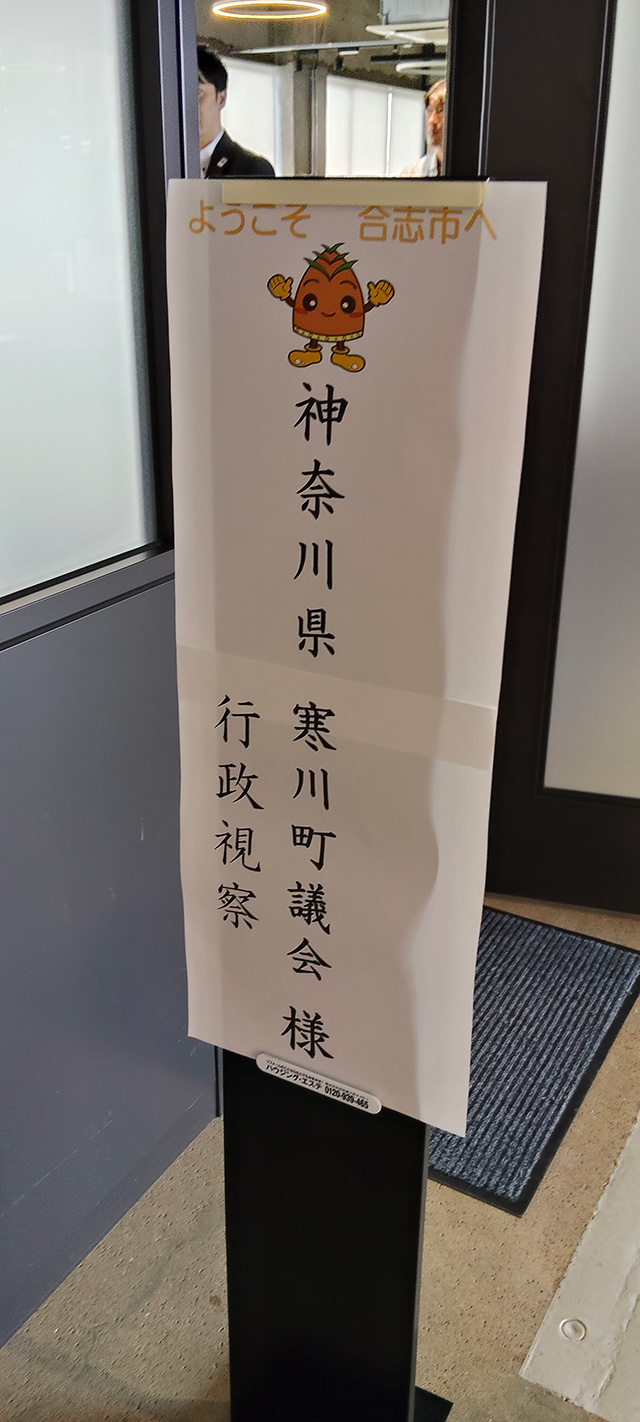 ようこそ 合志市へ
神奈川県 寒川町議会 様
行政視察
ハウジング・エステ 0120-939-465